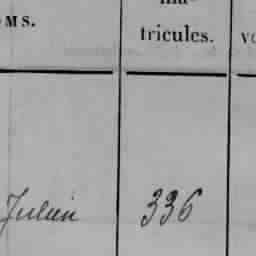 OMS. ma-
tricules. vo
Julien 336